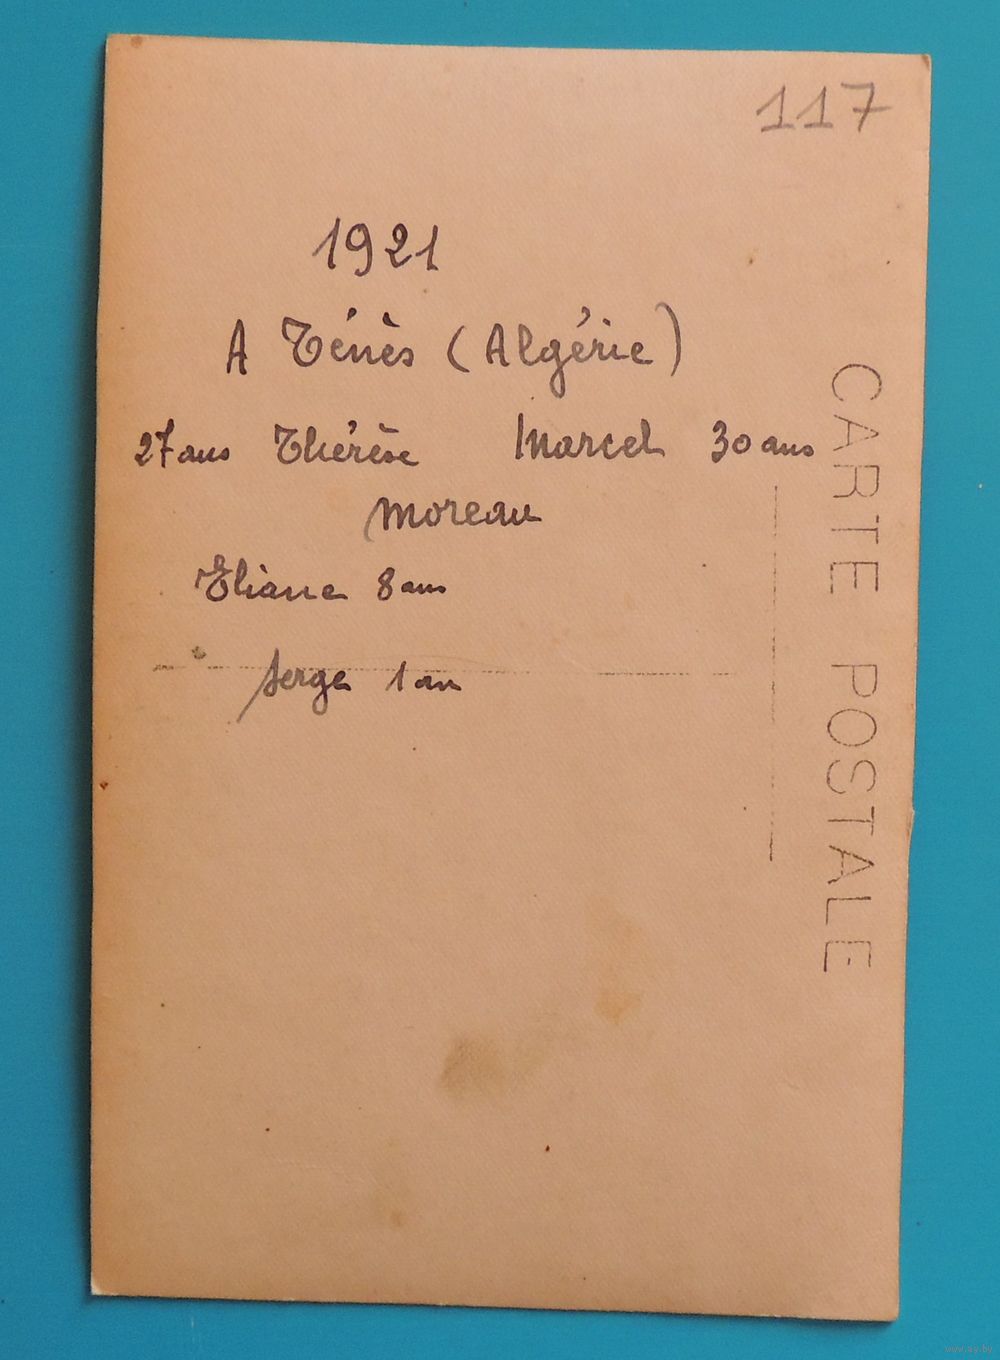 117
1921
A Ténès (Algérie)
27 ans Thérèse Marcel 30 ans
Moreau
Eliane 8 ans
Serge 1 an
CARTE POSTALE
www.ay.by